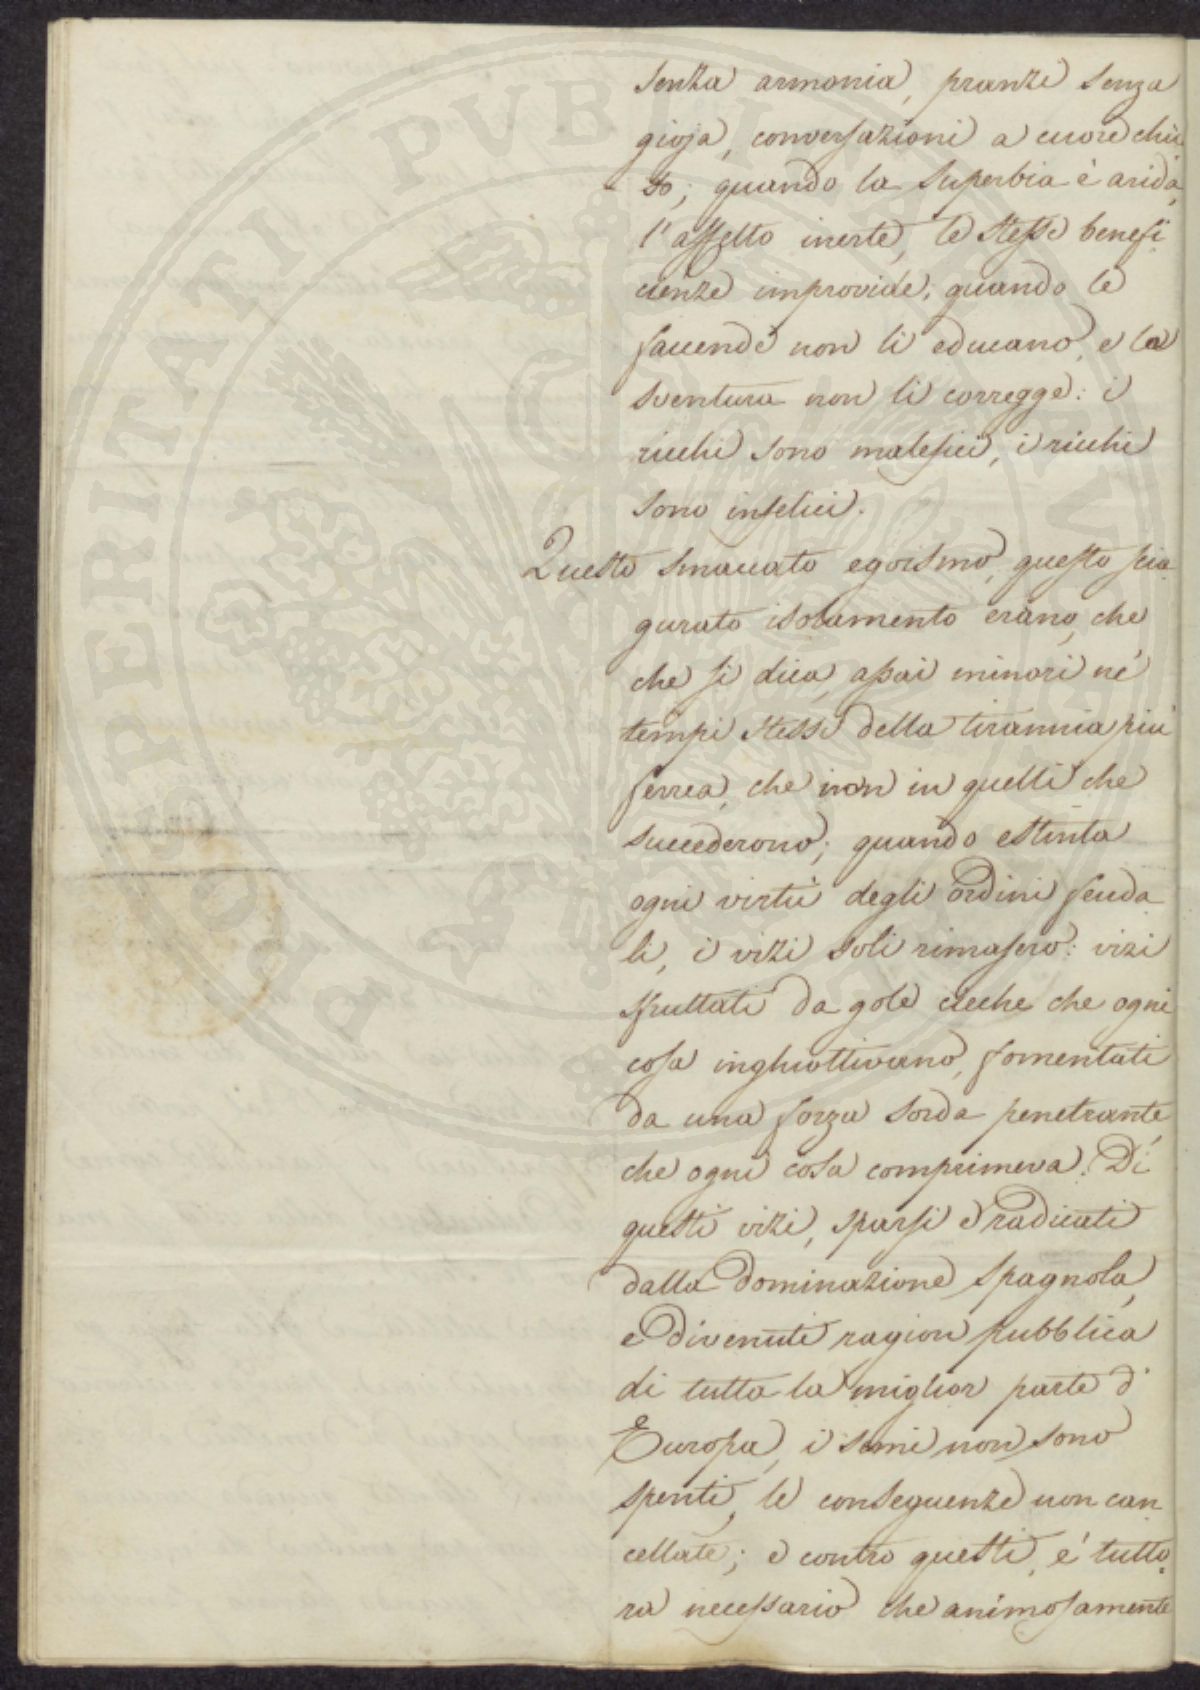 senza armonia, pranzi senza
gioja, conversazioni a cuore chiu
so; quando la superbia è arida,
l'affetto inerte, le stesse benefi
cienze improvide; quando le
faccende non li educano, e la
sventura non li corregge: i
ricchi sono malefici, i ricchi
sono infelici.
Questo smaccato egoismo, questo scia
gurato isolamento erano, che
che si dica, assai minori ne'
tempi stessi della tirannia più
ferrea, che non in quelli che
succederono; quando estinta
ogni virtù degli ordini feuda
li, i vizi soli rimasero: vizi
sfruttati da gole cieche che ogni
cosa inghiottivano, fomentati
da una forza sorda penetrante,
che ogni cosa comprimeva. Di
questi vizi, sparsi e radicati
dalla dominazione spagnola,
e divenuti ragion pubblica
di tutta la miglior parte d'
Europa, i semi non sono
spenti, le conseguenze non can
cellate; e contro questi, è tutto
ra necessario che animosamente
PROSPERITATI PVBLICAE